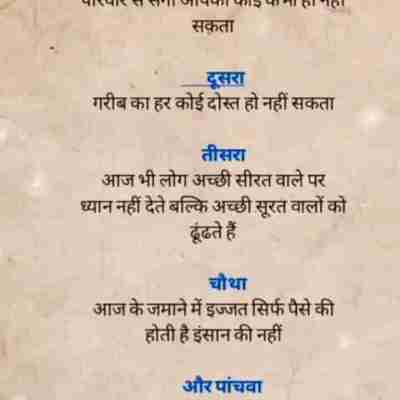 सकता
दूसरा
गरीब का हर कोई दोस्त हो नहीं सकता
तीसरा
आज भी लोग अच्छी सीरत वाले पर
ध्यान नहीं देते बल्कि अच्छी सूरत वालों को
ढूंढते हैं
चौथा
आज के जमाने में इज्जत सिर्फ पैसे की
होती है इंसान की नहीं
और पांचवा